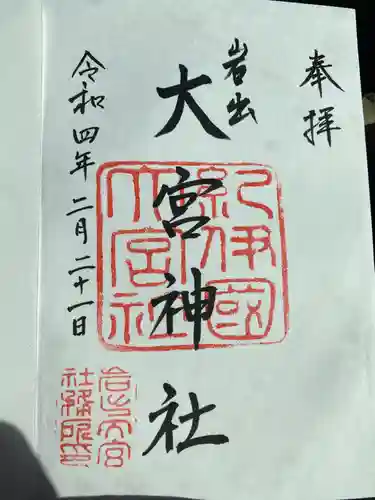 奉拝
岩出
大宮神社
令和四年二月二十一日
紀伊國
大宮社
岩出大宮
社務所印